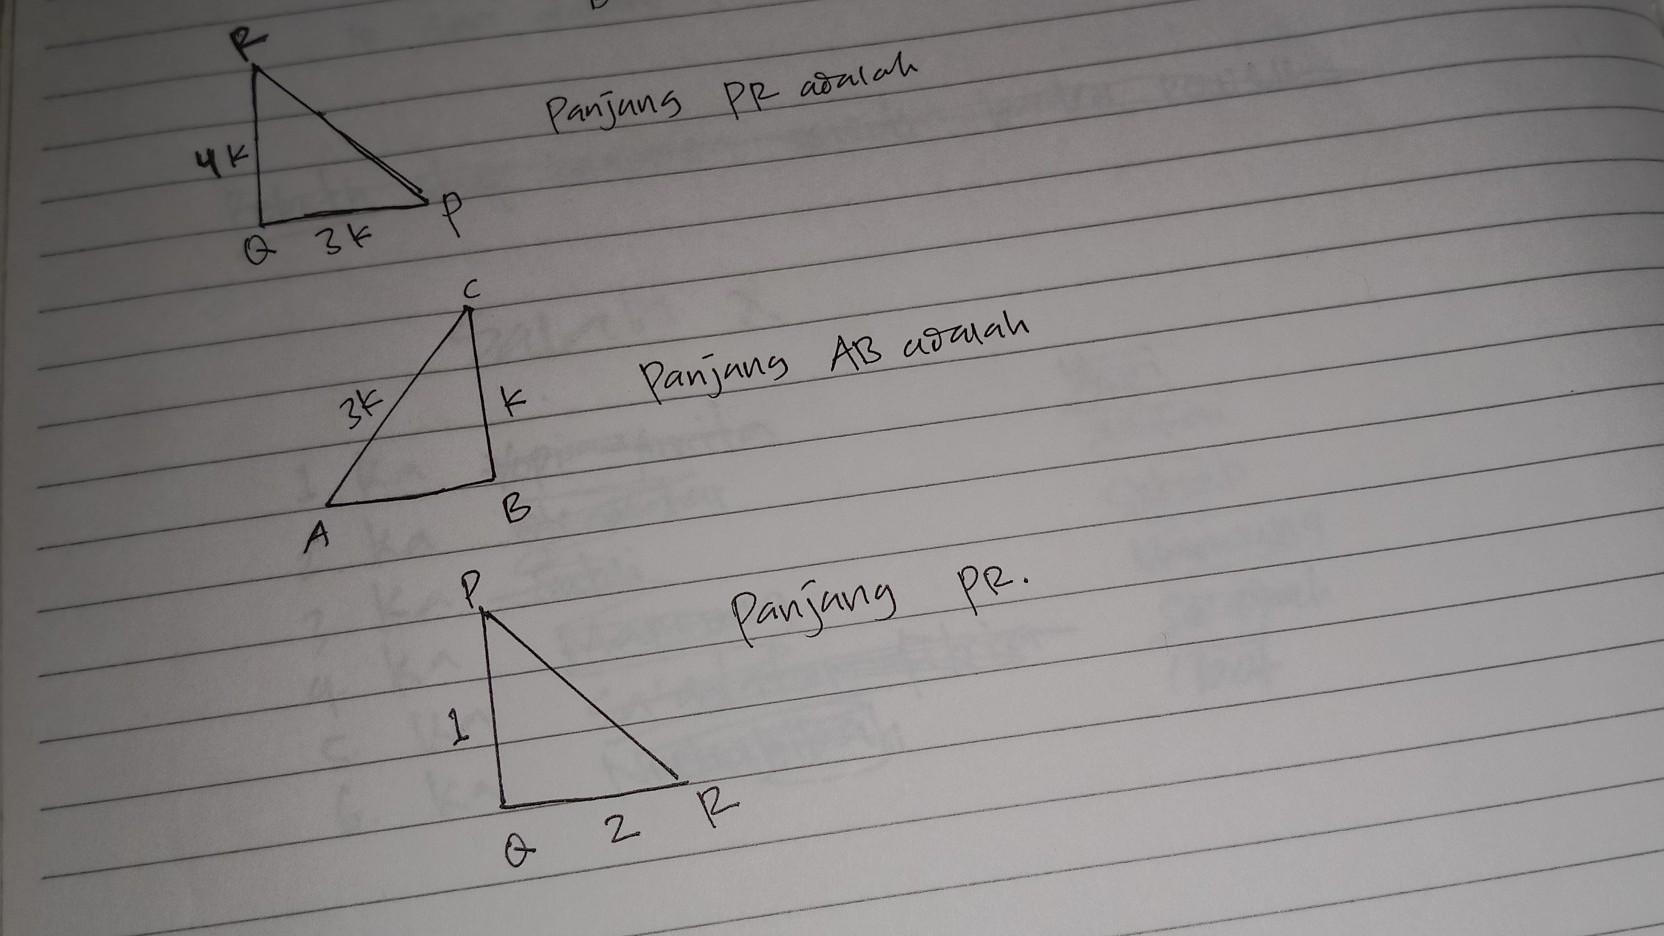 R
Panjang PR adalah
4K
P
Q 3K
C
Panjang AB adalah
3K K
B
A
P
Panjang PR.
1
R
Q 2